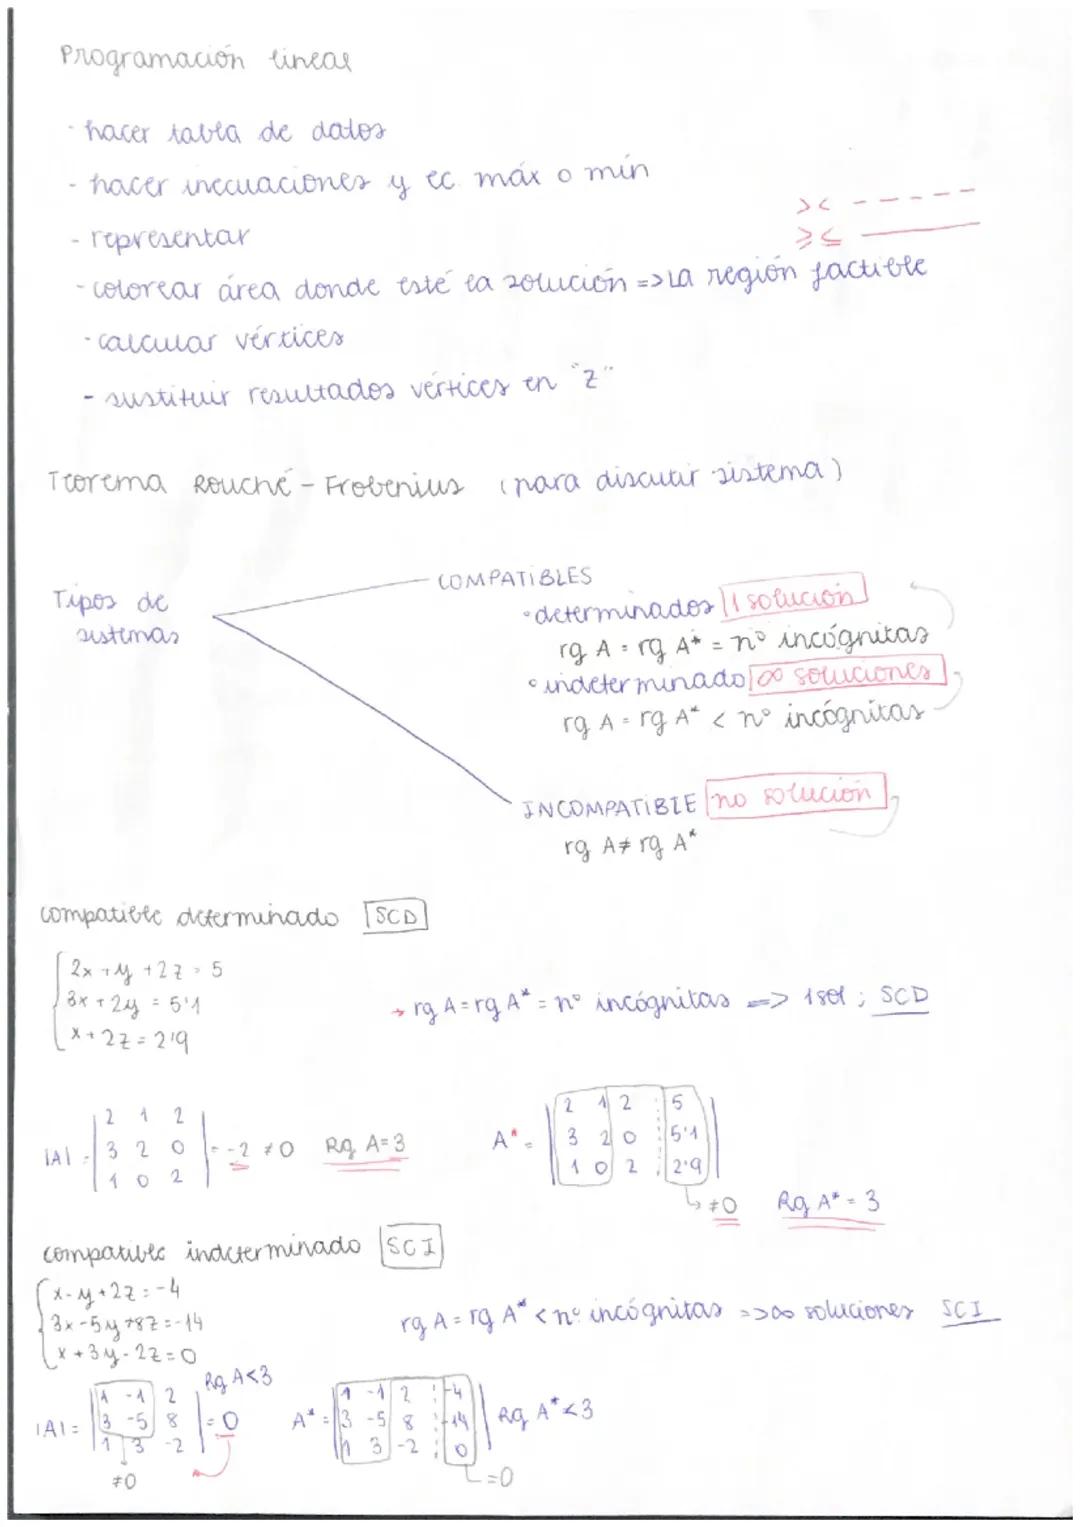 Programación lineal
- hacer tabla de datos
- hacer inecuaciones y ec. máx o mín
> < - - - - -
- representar
≥ ≤ ———
- colorear área donde esté la solución => La región factible
- calcular vértices
- sustituir resultados vértices en "Z"
Teorema Rouché - Frobenius (para discutir sistema)
Tipos de sistemas
COMPATIBLES
• determinados 1 solución
rg A = rg A* = nº incógnitas
• indeterminado ∞ soluciones
rg A = rg A* < nº incógnitas
INCOMPATIBLE no solución
rg A ≠ rg A*
compatible determinado SCD
2x + y + 2z = 5
3x + 2y = 5'1
x + 2z = 2'9
→ rg A = rg A* = nº incógnitas => 1 sol ; SCD
|A| = | 2 1 2 | 3 2 0 | 1 0 2 | = -2 ≠ 0 Rg A = 3
A* = | 2 1 2 ⋮ 5 | 3 2 0 ⋮ 5'1 | 1 0 2 ⋮ 2'9 |
↳ ≠ 0 Rg A* = 3
compatible indeterminado SCI
x - y + 2z = -4
3x - 5y + 8z = -14
x + 3y - 2z = 0
rg A = rg A* < nº incógnitas => ∞ soluciones SCI
Rg A < 3
|A| = | 1 -1 2 | 3 -5 8 | 1 3 -2 | = 0
≠ 0
A* = | 1 -1 2 ⋮ -4 | 3 -5 8 ⋮ -14 | 1 3 -2 ⋮ 0 | Rg A* < 3
= 0